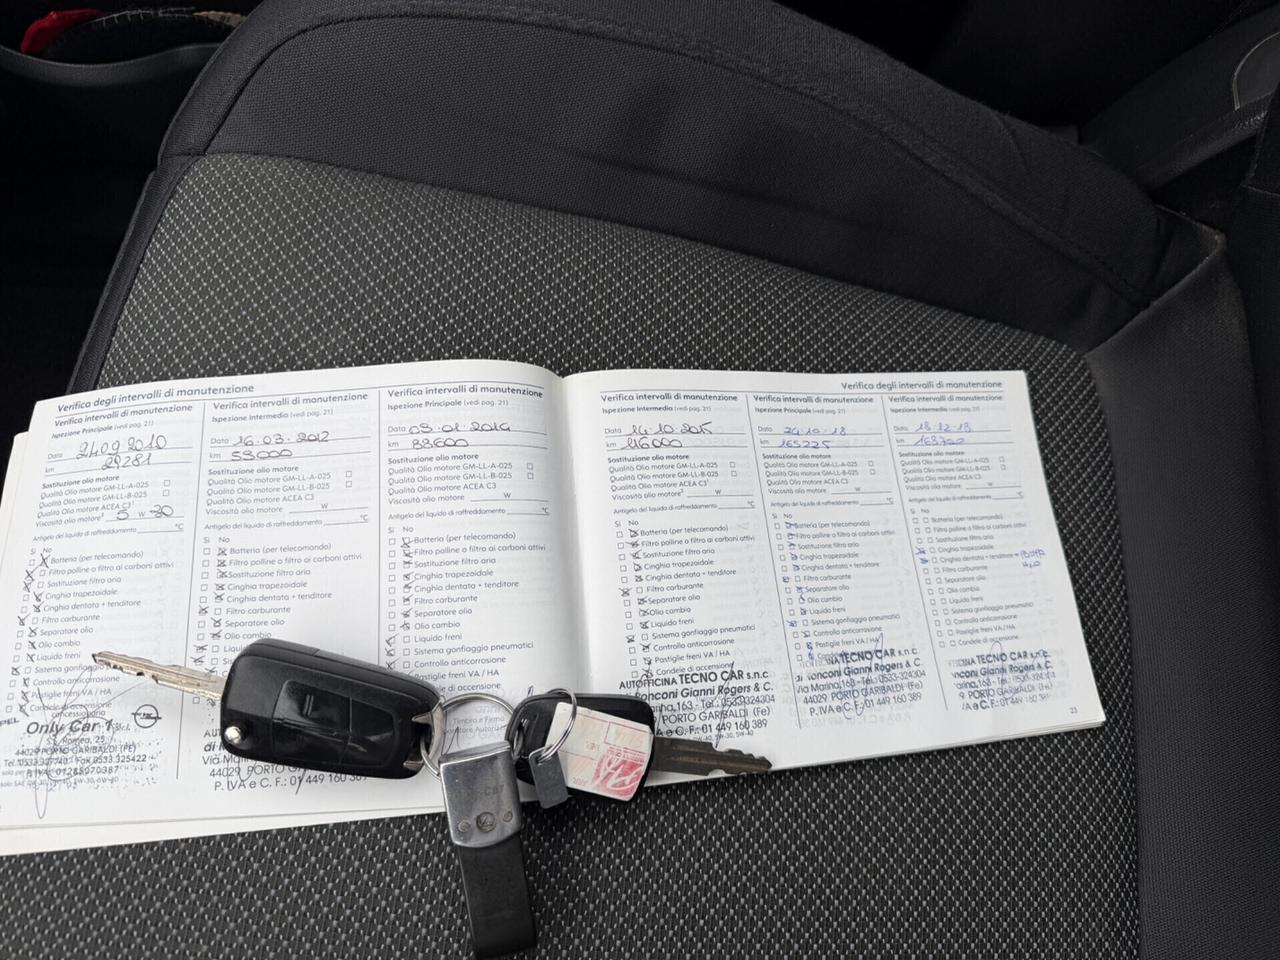 Verifica degli intervalli di manutenzione
Verifica intervalli di manutenzione
Ispezione Principale (vedi pag. 21)
Data 21.09.2010
km 29281
Sostituzione olio motore
Qualità Olio motore GM-LL-A-025
Qualità Olio motore GM-LL-B-025
Qualità Olio motore ACEA C3
Viscosità olio motore 5 W 30
Antigelo del liquido di raffreddamento °C
Si No
Batteria (per telecomando)
Filtro polline o filtro ai carboni attivi
Sostituzione filtro aria
Cinghia trapezoidale
Cinghia dentata + tenditore
Filtro carburante
Separatore olio
Olio cambio
Liquido freni
Sistema gonfiaggio
Controllo anticorrosione
Pastiglie freni VA / HA
Candele di accensione
Only Car 1
S.S. Romea, 25
44029 PORTO GARIBALDI (FE)
Fax 0533.325422
Verifica intervalli di manutenzione
Ispezione Intermedia (vedi pag. 21)
Data 16.03.2012
km 59000
Sostituzione olio motore
Qualità Olio motore GM-LL-A-025
Qualità Olio motore GM-LL-B-025
Qualità Olio motore ACEA C3
Viscosità olio motore W
Antigelo del liquido di raffreddamento °C
Si No
Batteria (per telecomando)
Filtro polline o filtro ai carboni attivi
Sostituzione filtro aria
Cinghia trapezoidale
Cinghia dentata + tenditore
Filtro carburante
Separatore olio
Olio cambio
44029 PORTO
P. IVA e C.F.: 01 449 160
Verifica intervalli di manutenzione
Ispezione Principale (vedi pag. 21)
Data 09.01.2014
km 88600
Sostituzione olio motore
Qualità Olio motore GM-LL-A-025
Qualità Olio motore GM-LL-B-025
Qualità Olio motore ACEA C3
Viscosità olio motore W
Antigelo del liquido di raffreddamento °C
Si No
Batteria (per telecomando)
Filtro polline o filtro ai carboni attivi
Sostituzione filtro aria
Cinghia trapezoidale
Cinghia dentata + tenditore
Filtro carburante
Separatore olio
Olio cambio
Liquido freni
Sistema gonfiaggio pneumatici
Controllo anticorrosione
di accensione
Timbro e Firma
Verifica degli intervalli di manutenzione
Verifica intervalli di manutenzione
Ispezione Intermedia (vedi pag. 21)
Data 14.10.2015
km 116000
Sostituzione olio motore
Qualità Olio motore GM-LL-A-025
Qualità Olio motore GM-LL-B-025
Qualità Olio motore ACEA C3
Viscosità olio motore W
Antigelo del liquido di raffreddamento °C
Si No
Batteria (per telecomando)
Filtro polline o filtro ai carboni attivi
Sostituzione filtro aria
Cinghia trapezoidale
Cinghia dentata + tenditore
Filtro carburante
Separatore olio
Olio cambio
Liquido freni
Sistema gonfiaggio pneumatici
Controllo anticorrosione
Pastiglie freni VA / HA
Candele di accensione
AUTOFFICINA TECNO CAR s.n.c.
di Ronconi Gianni Rogers & C.
Marina,163 - Tel.: 0533.324304
PORTO GARIBALDI (Fe)
C. F.: 01 449 160 389
Verifica intervalli di manutenzione
Ispezione Principale (vedi pag. 21)
Data 24.10.18
km 165225
Sostituzione olio motore
Qualità Olio motore GM-LL-A-025
Qualità Olio motore GM-LL-B-025
Qualità Olio motore ACEA C3
Viscosità olio motore W
Antigelo del liquido di raffreddamento °C
Si No
Batteria (per telecomando)
Filtro polline o filtro ai carboni attivi
Sostituzione filtro aria
Cinghia trapezoidale
Cinghia dentata + tenditore
Filtro carburante
Separatore olio
Olio cambio
Liquido freni
Sistema gonfiaggio pneumatici
Controllo anticorrosione
Pastiglie freni VA / HA
TECNO CAR s.n.c.
Ronconi Gianni Rogers & C.
Via Marina,163 - Tel.: 0533.324304
44029 PORTO GARIBALDI (Fe)
P. IVA e C. F.: 01 449 160 389
Verifica intervalli di manutenzione
Ispezione Intermedia (vedi pag. 21)
Data 18.12.18
km 168700
Sostituzione olio motore
Qualità Olio motore GM-LL-A-025
Qualità Olio motore GM-LL-B-025
Qualità Olio motore ACEA C3
Viscosità olio motore W
Antigelo del liquido di raffreddamento °C
Si No
Batteria (per telecomando)
Filtro polline o filtro ai carboni attivi
Sostituzione filtro aria
Cinghia trapezoidale
Cinghia dentata + tenditore + POMPA
H2O
Filtro carburante
Separatore olio
Olio cambio
Liquido freni
Sistema gonfiaggio pneumatici
Controllo anticorrosione
Pastiglie freni VA / HA
Candele di accensione
TECNO CAR s.n.c.
Ronconi Gianni Rogers & C.
PORTO GARIBALDI (Fe)
C. F.: 01 449 160 389
23